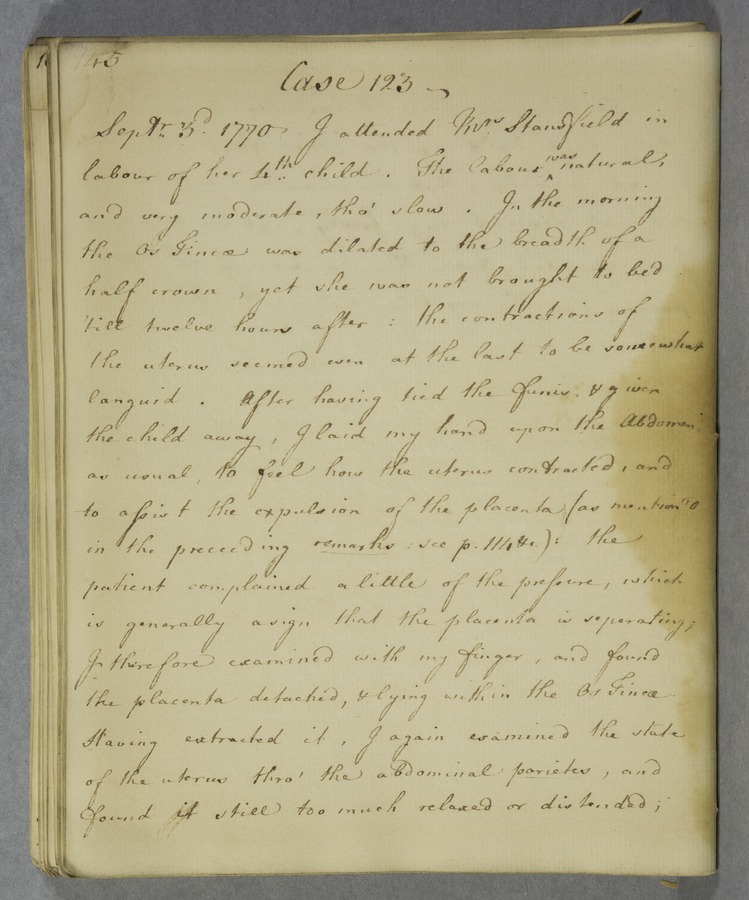 145
Case 123
Septr. 3d. 1770 I attended Mrs Standfield in
labour of her 4th. child. The labour was natural,
and very moderate, tho' slow. In the morning
the Os Tincæ was dilated to the breadth of a
half crown, yet she was not brought to bed
'till twelve hours after: the contractions of
the uterus seemed even at the last to be somewhat
languid. After having tied the funis, & given
the child away, I laid my hand upon the Abdomen
as usual, to feel how the uterus contracted, and
to assist the expulsion of the placenta (as mention'd
in the preceeding remarks: see p. 114 &c): the
patient complained a little of the pressure, which
is generally a sign that the placenta is seperating;
I therefore examined with my finger, and found
the placenta detached, & lying within the Os Tincæ.
Having extracted it, I again examined the state
of the uterus thro' the abdominal parietes, and
found it still too much relaxed or distended;